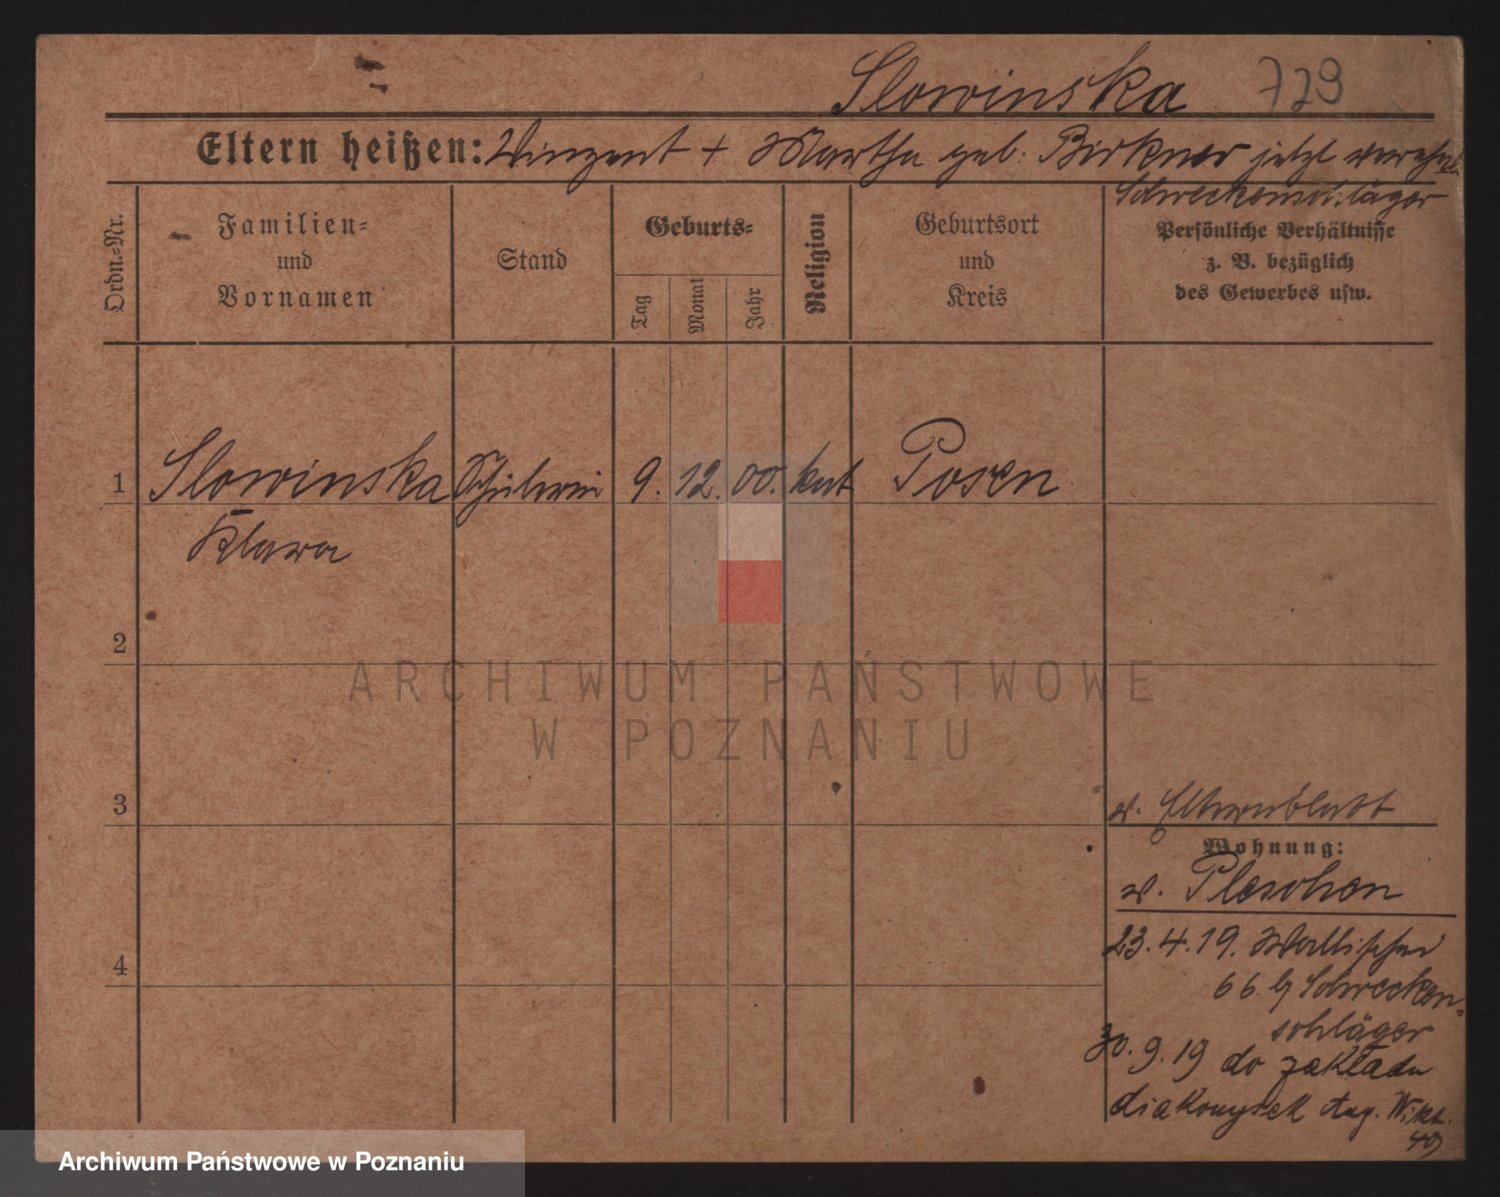 Slowinska 729
Eltern heißen: Vinzent + Martha geb. Birkner jetzt vereh.
Schreckenschläger
Ordn.-Nr.
Familien-
und
Vornamen
Stand
Geburts-
Tag
Monat
Jahr
Religion
Geburtsort
und
Kreis
Persönliche Verhältnisse
z. B. bezüglich
des Gewerbes usw.
1 Slowinska Schülerin 9. 12. 00. kat Posen
Klara
2
3
v. Elternblatt
Wohnung:
v. Pleschen
4
23.4.19. Wallischei
66. b/ Schrecken-
schläger
30.9.19 do zakładu
diakonysek Aug. Wikt.
49
ARCHIWUM PAŃSTWOWE
W POZNANIU
Archiwum Państwowe w Poznaniu